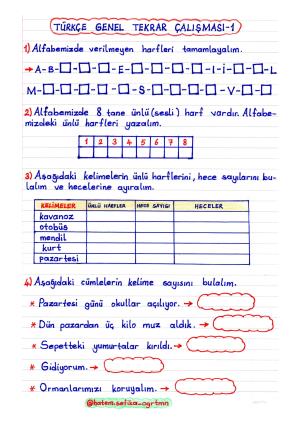 TÜRKÇE GENEL TEKRAR ÇALIŞMASI-1
1) Alfabemizde verilmeyen harfleri tamamlayalım.
→ A-B-□-□-□-E-□-□-□-□-I-İ-□-□-L
M-□-□-□-□-□-S-□-□-□-□-V-□-□
2) Alfabemizde 8 tane ünlü (sesli) harf vardır. Alfabe-
mizdeki ünlü harfleri yazalım.
1 2 3 4 5 6 7 8
3) Aşağıdaki kelimelerin ünlü harflerini, hece sayılarını bu-
lalım ve hecelerine ayıralım.
KELİMELER ÜNLÜ HARFLER HECE SAYISI HECELER
kavanoz
otobüs
mendil
kurt
pazartesi
4) Aşağıdaki cümlelerin kelime sayısını bulalım.
* Pazartesi günü okullar açılıyor. →
* Dün pazardan üç kilo muz aldık. →
* Sepetteki yumurtalar kırıldı. →
* Gidiyorum. →
* Ormanlarımızı koruyalım. →
@hatem.sefika_ogrtmn